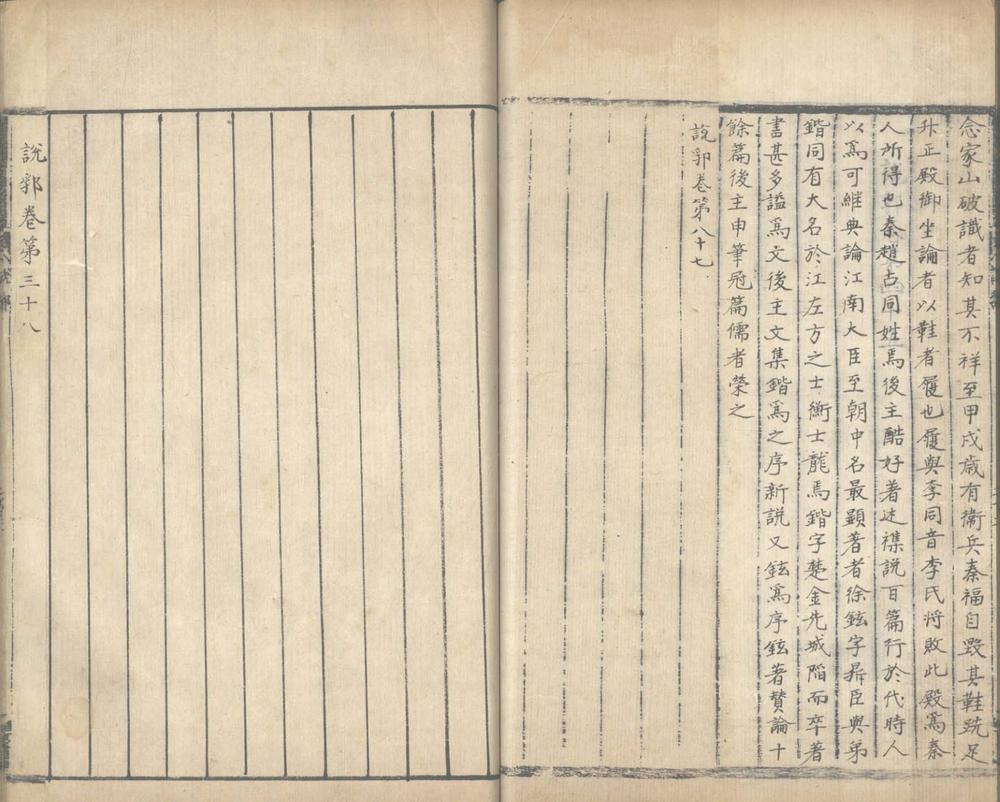 念家山破識者知其不祥至甲戌歲有衛兵秦福自毀其鞋跣足
升正殿御坐論者以鞋者履也履與李同音李氏將敗此殿爲秦
人所得也秦趙古同姓焉後主酷好著述襍説百篇行於代時人
以爲可繼典論江南大臣至朝中名最顯著者徐鉉字鼎臣與弟
鍇同有大名於江左方之士衡士龍焉鍇字楚金先城陷而卒著
書甚多謚爲文後主文集鍇爲之序新説又鉉爲序鉉著贊論十
餘篇後主申筆冠篇儒者榮之
說郛卷第八十七
說郛卷第三十八